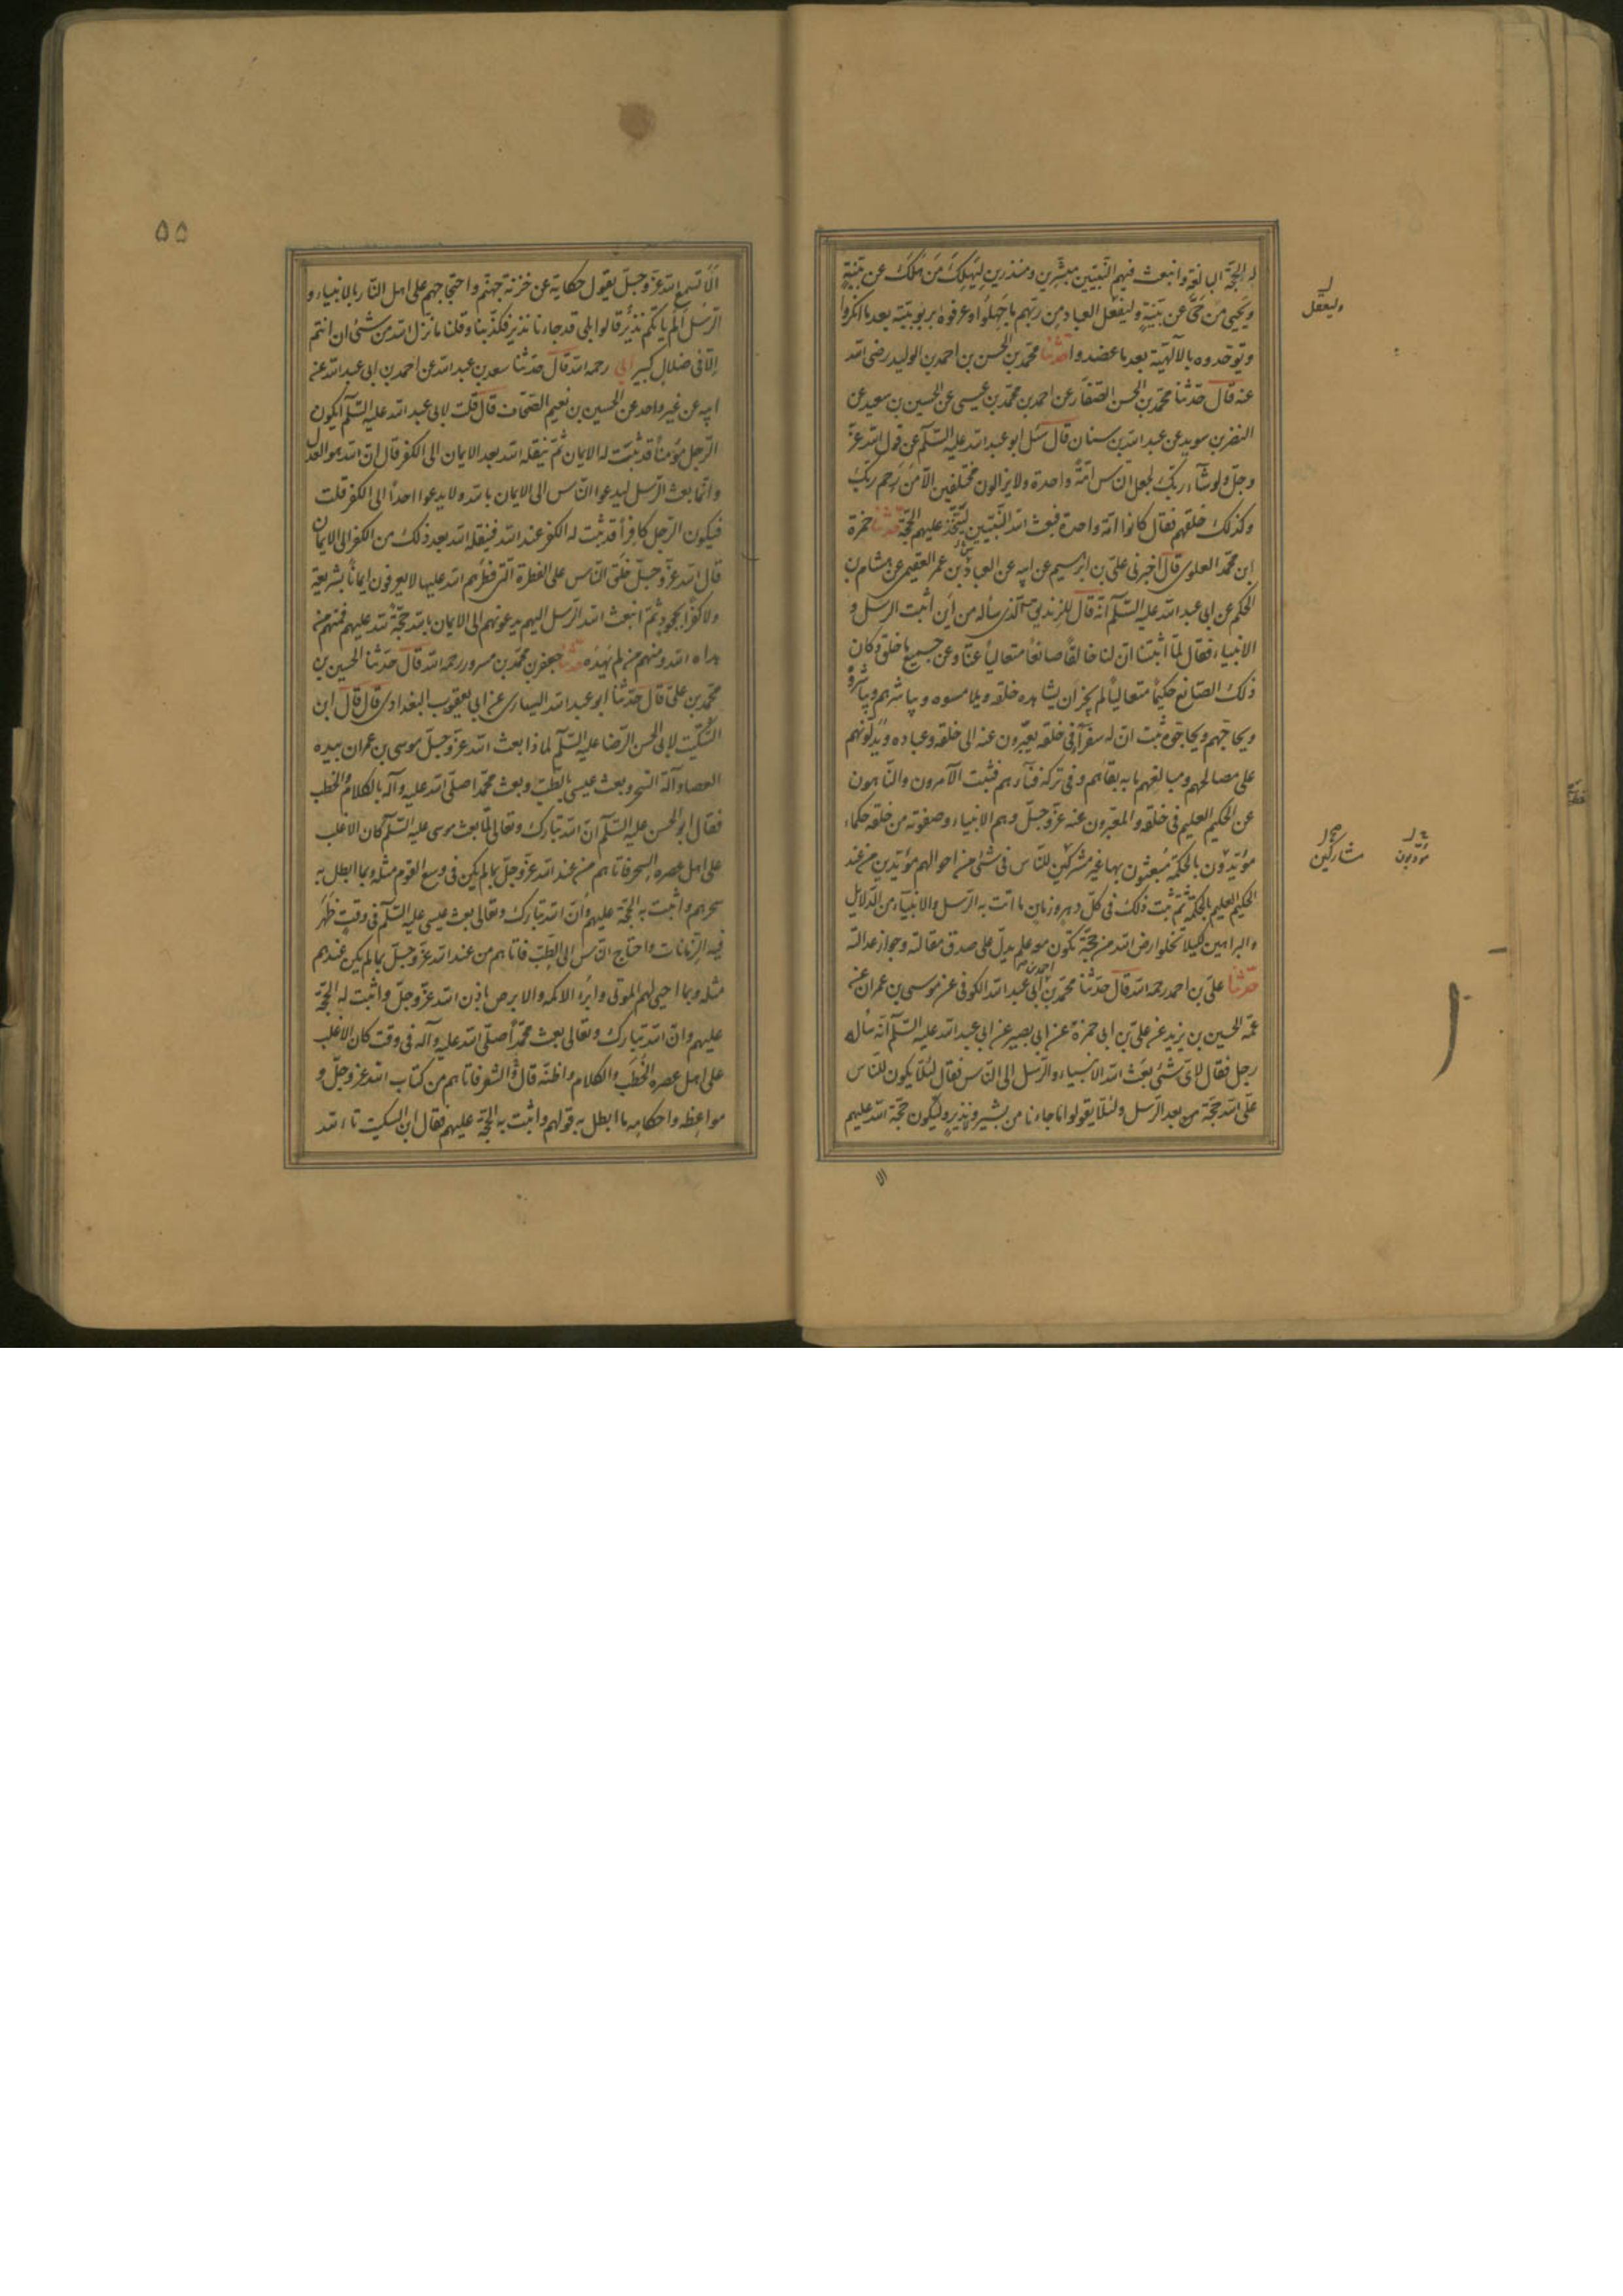 له الحجّة البالغة وابتعث فيهم النّبيّين مبشّرين ومنذرين ليَهلِكَ مَن هَلَكَ عن بيّنةٍ
ويَحيى مَن حَيَّ عن بيّنةٍ وليَعْقِل العباد مِن ربّهم ما جَهِلُوا وعرفوه بربوبيّته بعد ما انكروا
ويوحّدوه بالآلهيّة بعد ما عضدوا حدّثنا محمّد بن الحسن بن احمد بن الوليد رضى الله
عنه قال حدّثنا محمّد بن الحسن الصّفّار عن احمد بن محمّد بن عيسى عن الحسين بن سعيد عن
النضر بن سويد عن عبد الله بن سنان قال سئل ابو عبد الله عليه السّلم عن قول الله عزّ
وجلّ ولو شآء ربّك لجعل النّاس امّةً واحدة ولا يزالون مختلفين الّا مَن رَحِم ربّك
وكذلك خلقهم فقال كانوا امّة واحدة فبعث الله النّبيّين ليتّخذ عليهم الحجّة حدّثنا حمزة
ابن محمّد العلوى قال اخبرنى علىّ بن ابرهيم عن ابيه عن العباس بن عمر الفقيمى عن هشام بن
الحكم عن ابى عبد الله عليه السّلم انّه قال للزنديق الّذى سأله من اين اثبت الرسل و
الانبياء فقال لمّا اثبتنا انّ لنا خالقاً صانعاً متعالياً عنّا وعن جميع ما خلق وكان
ذلك الصّانع حكيماً متعالياً لم يجز ان يشاهده خلقه ويلامسوه ويباشرهم ويباشروه
ويحاجّهم ويحاجّوه ثبت انّ له سفرآء فى خلقه يعبّرون عنه الى خلقه وعباده ويدلّونهم
على مصالحهم ومنافعهم وما به بقاؤهم وفى تركه فنآءهم فثبت الآمرون والنّاهون
عن الحكيم العليم فى خلقه والمعبّرون عنه عزّ وجلّ وهم الانبياء وصفوته من خلقه حكماء
مؤيّدون بالحكمة مبعوثون بها غير مشركين للنّاس فى شئ من احوالهم مؤيّدين من عند
الحكيم العليم بالحكمة ثمّ ثبت ذلك فى كلّ دهر وزمانٍ ما اتت به الرّسل والانبيآء من الدّلايل
والبراهين لكيلا تخلو ارض الله من حجّة تكون معه علم يدلّ على صدق مقالته وجواز عدالته
حدّثنا علىّ بن احمد رحمه الله قال حدّثنا محمّد بن ابى عبد الله الكوفى عن موسى بن عمران عن
عمّه الحسين بن يزيد عن علىّ بن ابى حمزة عن ابى بصير عن ابى عبد الله عليه السّلم انّه سأله
رجل فقال لاىّ شئ بعَث الله الانبياء والرّسل الى النّاس فقال لئلّا يكون للنّاس
على الله حجّة من بعد الرّسل ولئلّا يقولوا ما جاءنا من بشيرٍ ونذيرٍ وليكون حجّة الله عليهم
الا
وليعقل
مشاركين
مؤدبون
٥٥
الَا تَسمع الله عزّ وجلّ يقول حكاية عن خزنة جهنّم واحتجاجهم على اهل النّار بالانبياء و
الرّسل اَلَم يأتكم نذيرٌ قالوا بلى قد جاءنا نذير فكذّبنا وقلنا ما نزّل الله من شئ ان انتم
الّا فى ضلالٍ كبير ابى رحمه الله قال حدّثنا سعد بن عبد الله عن احمد بن ابى عبد الله عن
ابيه عن غير واحد عن الحسين بن نعيم الصّحاف قال قلت لابى عبد الله عليه السّلم ايكون
الرّجل مؤمناً قد ثبتت له الايمان ثمّ ينقله الله بعد الايمان الى الكفر قال انّ الله هو العدل
وانّما بعث الرّسل ليدعوا النّاس الى الايمان بالله ولا يدعوا احداً الى الكفر قلت
فيكون الرّجل كافراً قد ثبت له الكفر عند الله فينقله الله بعد ذلك من الكفر الى الايمان
قال الله عزّ وجلّ خلق النّاس على الفطرة الّتى فطرهم الله عليها لا يعرفون ايماناً بشريعة
ولا كفراً بجحود ثمّ ابتعث الله الرّسل اليهم يدعونهم الى الايمان بالله حجّة لله عليهم فمنهم من
هداه الله ومنهم من لم يَهْدِه حدّثنا جعفر بن محمّد بن مسرور رحمه الله قال حدّثنا الحسين بن
محمّد بن علىّ قال حدّثنا ابو عبد الله السيارى عن ابى يعقوب البغدادى قال قال ابن
السّكّيت لابى الحسن الرّضا عليه السّلم لماذا بعث الله عزّ وجلّ موسى بن عمران بيده
العصا وآلة السّحر وبعث عيسى بالطّبّ وبعث محمّدا صلّى الله عليه وآله بالكلام والخطب
فقال ابو الحسن عليه السّلم انّ الله تبارك وتعالى لمّا بعث موسى عليه السّلم كان الاغلب
على اهل عصره السحر فاتاهم من عند الله عزّ وجلّ بما لم يكن فى وسع القوم مثله وبما ابطل به
سحرهم واثبت به الحجّة عليهم وانّ الله تبارك وتعالى بعث عيسى عليه السّلم فى وقتٍ ظَهَر
فيه الزّمانات واحتاج النّاس الى الطّبّ فاتاهم من عند الله عزّ وجلّ بما لم يكن عندهم
مثله وبما احيى لهم الموتى وابرء الاكمه والابرص باذن الله عزّ وجلّ واثبت له الحجّة
عليهم وانّ الله تبارك وتعالى بعث محمّداً صلّى الله عليه وآله فى وقت كان الاغلب
على اهل عصره الخُطَب والكلام واظنّه قال والشعر فاتاهم من كتاب الله عزّ وجلّ و
مواعظه واحكامه ما ابطل به قولهم واثبت به الحجّة عليهم فقال ابن السكيت تالله